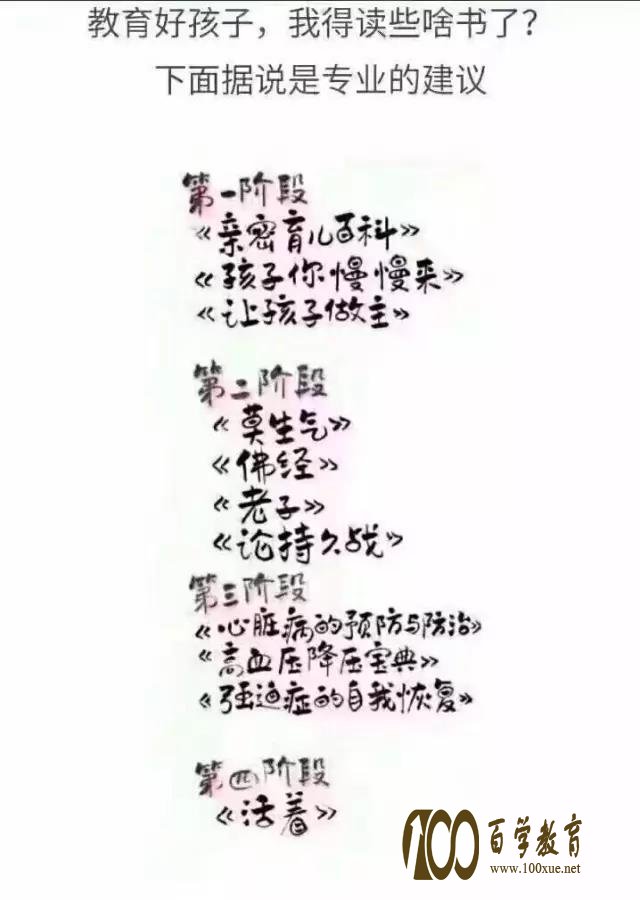 教育好孩子，我得读些啥书了？
下面据说是专业的建议
第一阶段
《亲密育儿百科》
《孩子你慢慢来》
《让孩子做主》
第二阶段
《莫生气》
《佛经》
《老子》
《论持久战》
第三阶段
《心脏病的预防与防治》
《高血压降压宝典》
《强迫症的自我恢复》
第四阶段
《活着》
100百学教育
www.100xue.net